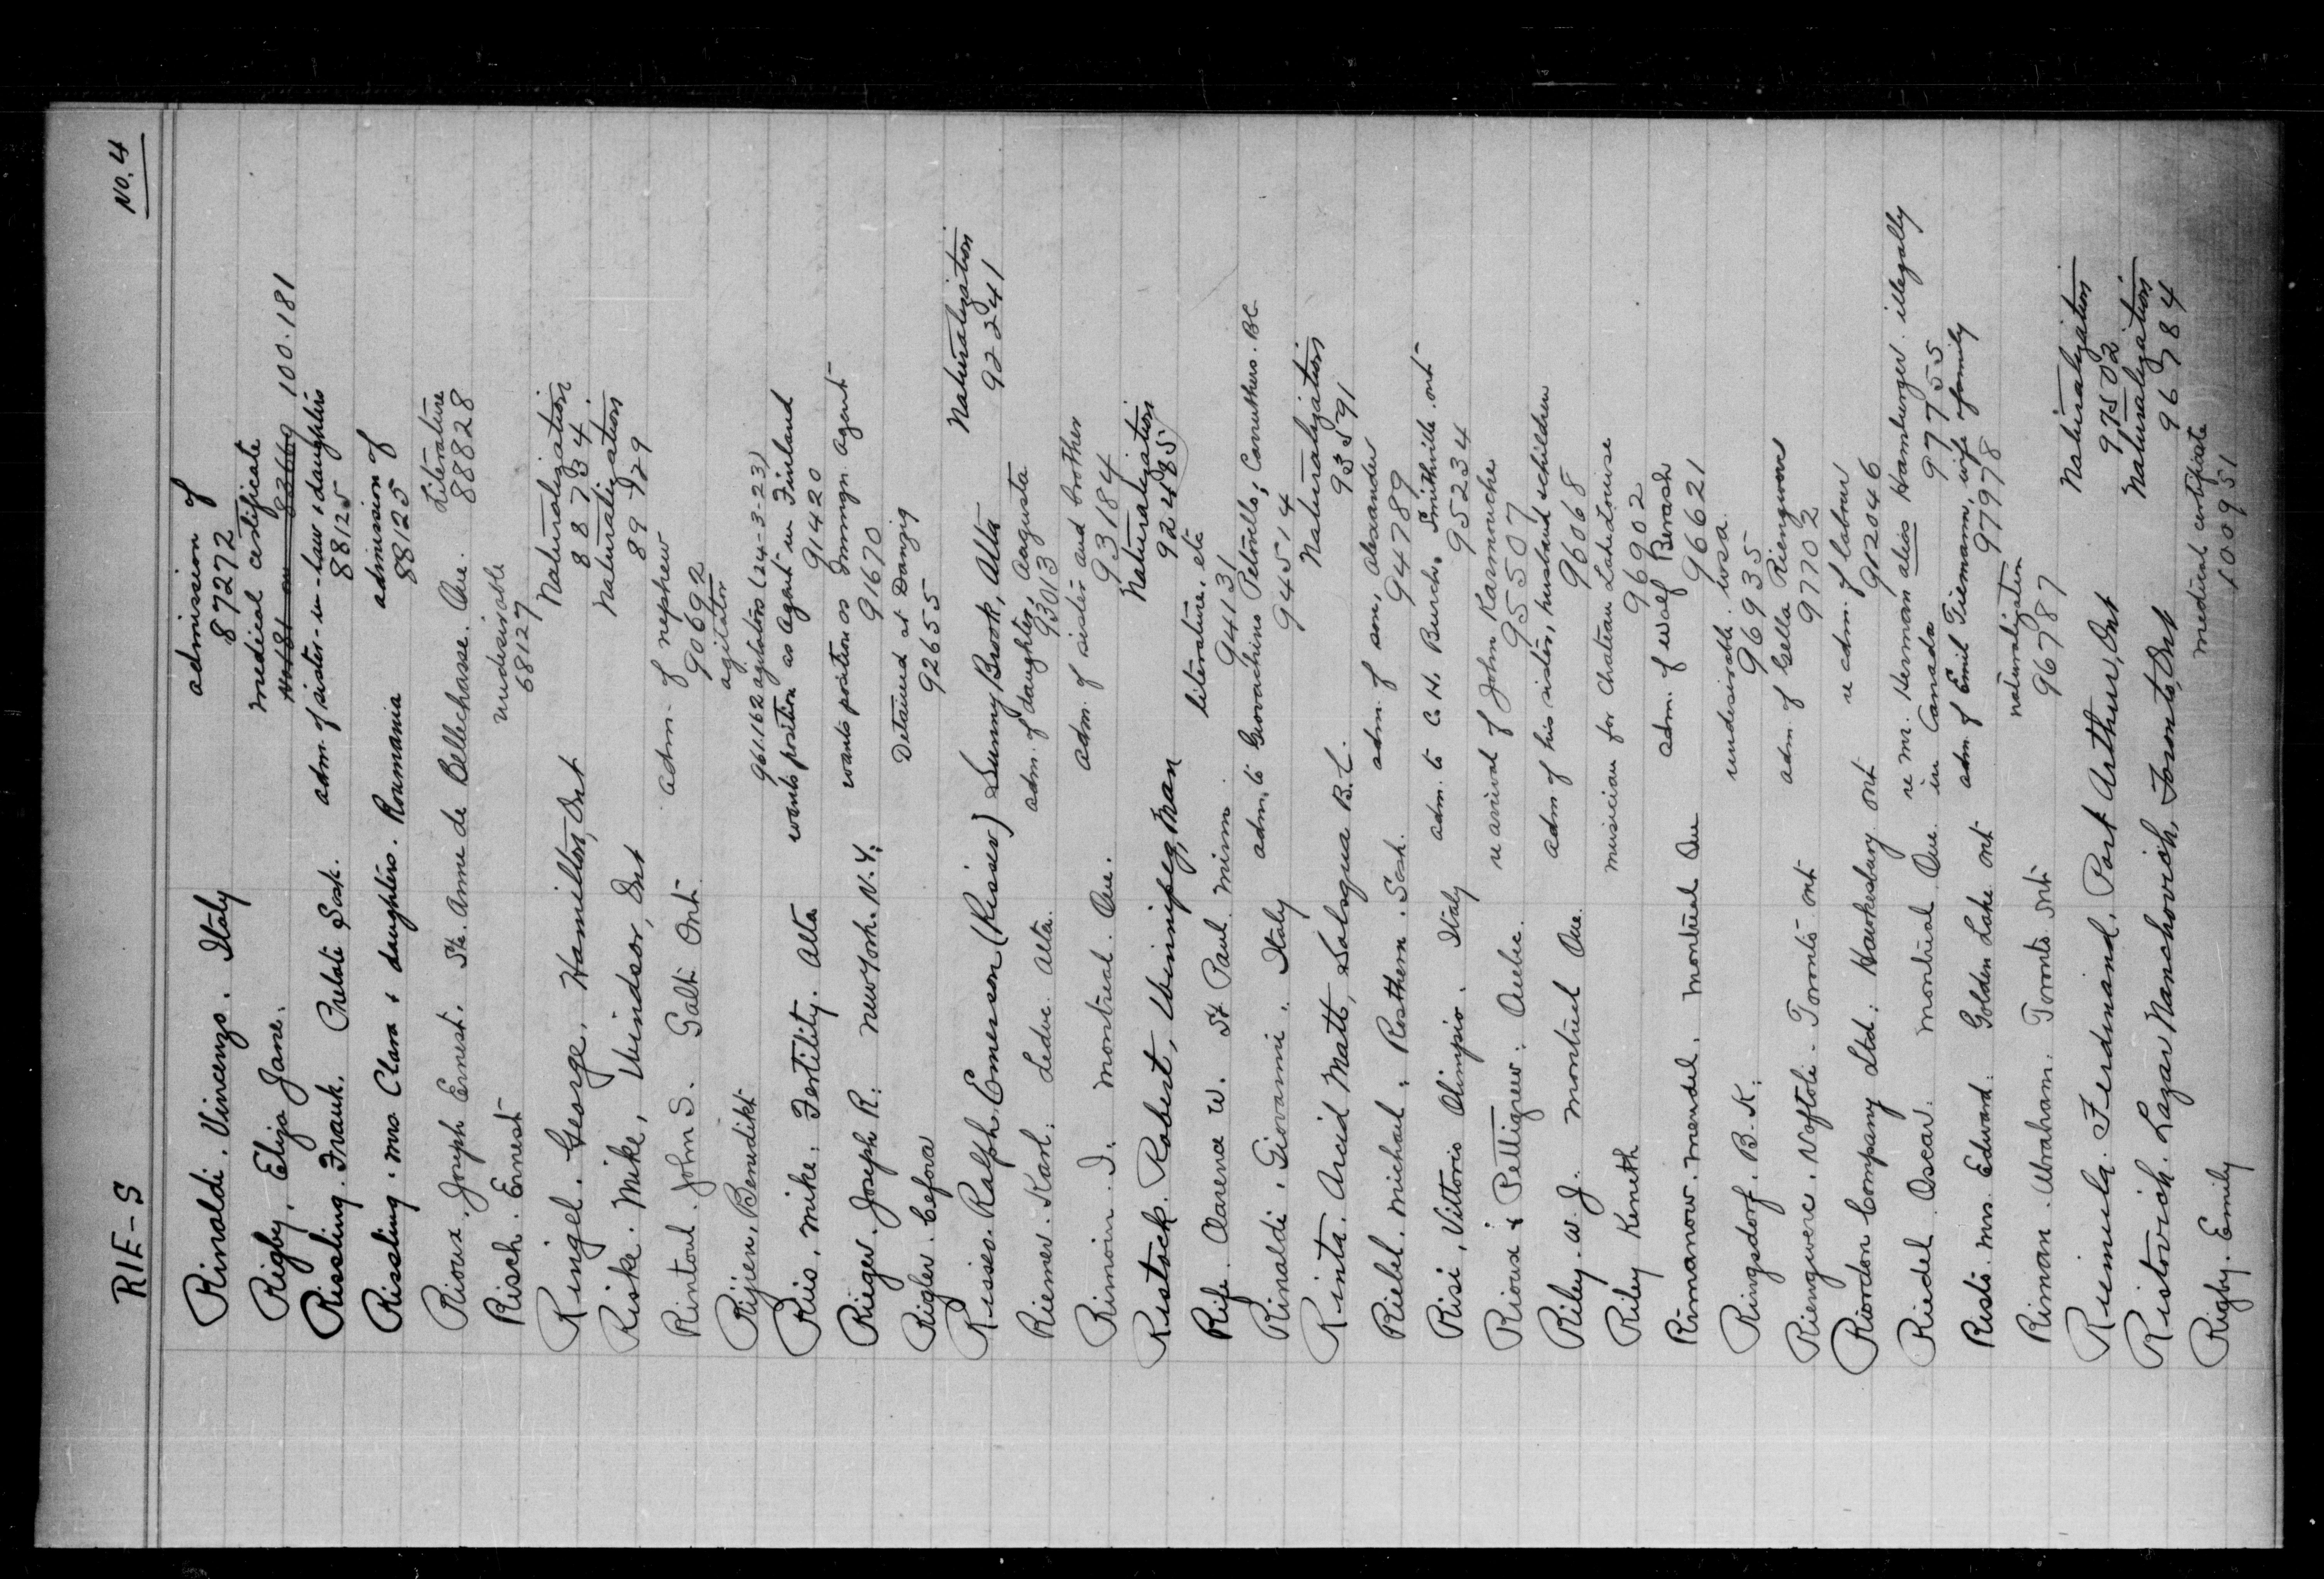 RIE-S No. 4
Rinaldi. Vincenzo. Italy admission of
87272
Rigby. Eliza Jane. medical certificate
100.181
Rissling. Frank. Prelate Sask. adm. of sister-in-law & daughters
88125
Rissling. Mrs Clara & daughters. Roumania admission of
88125
Rioux. Joseph Ernest. Ste. Anne de Bellechasse. Que. Literature
88828
Risch. Ernest undesirable
68127
Ringel. George. Hamilton, Ont Naturalization
88734
Riske. Mike, Windsor, Ont Naturalization
89729
Rintoul. John S. Galt Ont. adm. of nephew
90692
Rijien, Benedikt agitator
961.162 agitators (24-3-23)
Riis. Mike. Fertility. Alta wants position as Agent in Finland
91420
Rieger. Joseph R. New York. N.Y. wants position as Immign. Agent
91670
Rigler. Cefora Detained at Danzig
92655
Risser. Ralph Emerson (Risser) Sunny Brook, Alta Naturalization
92241
Riemer. Karl. Leduc Alta. adm. of daughter, Augusta
93013
Rimoin. I. Montreal. Que. adm. of sister and brother
93184
Ristock. Robert, Winnipeg, Man Naturalization
92485
Rife. Clarence W. St Paul Minn. literature. etc
94131
Rinaldi. Giovanni. Italy adm. to Giovachino Petovello, Carruthers. BC
94514
Rinta. Arcid Matt, Salmo B.C. Naturalization
93591
Riebel. Michael. Rosthern. Sask. adm. of son, Alexander
94789
Risi. Vittorio Olimpio. Italy adm. to C. H. Burch. Smithville. Ont
95234
Rioux & Pettigrew. Quebec. re arrival of John Karmouche
95507
Riley. W. J. Montreal Que. adm of his sister, husband & children
96068
Riley Keneth musician for Chateau Lake Louise
96902
Rimanow. Mendel. Montreal Que adm. of Wolf Berash
96621
Ringsdorf. B. K. undesirable. USA.
96935
Riengwerc. Naftoli. Toronto. Ont adm. of Cella Riengwerc
97702
Riordon Company Ltd. Hawkesbury Ont re adm. of labour
912046
Riedel. Oscar. Montreal Que. re Mr. Herman alias Hamburger. illegally
in Canada 97755
Risto. Mrs. Edward. Golden Lake Ont adm. of Emil Tiemann, wife & family
97978
Riman. Abraham. Toronto. Ont naturalization
96787
Riimula. Ferdinand. Port Arthur, Ont Naturalization
97502
Ristovich. Lazar Manshovich, Toronto, Ont Naturalization
96784
Rigby. Emily medical certificate
100951